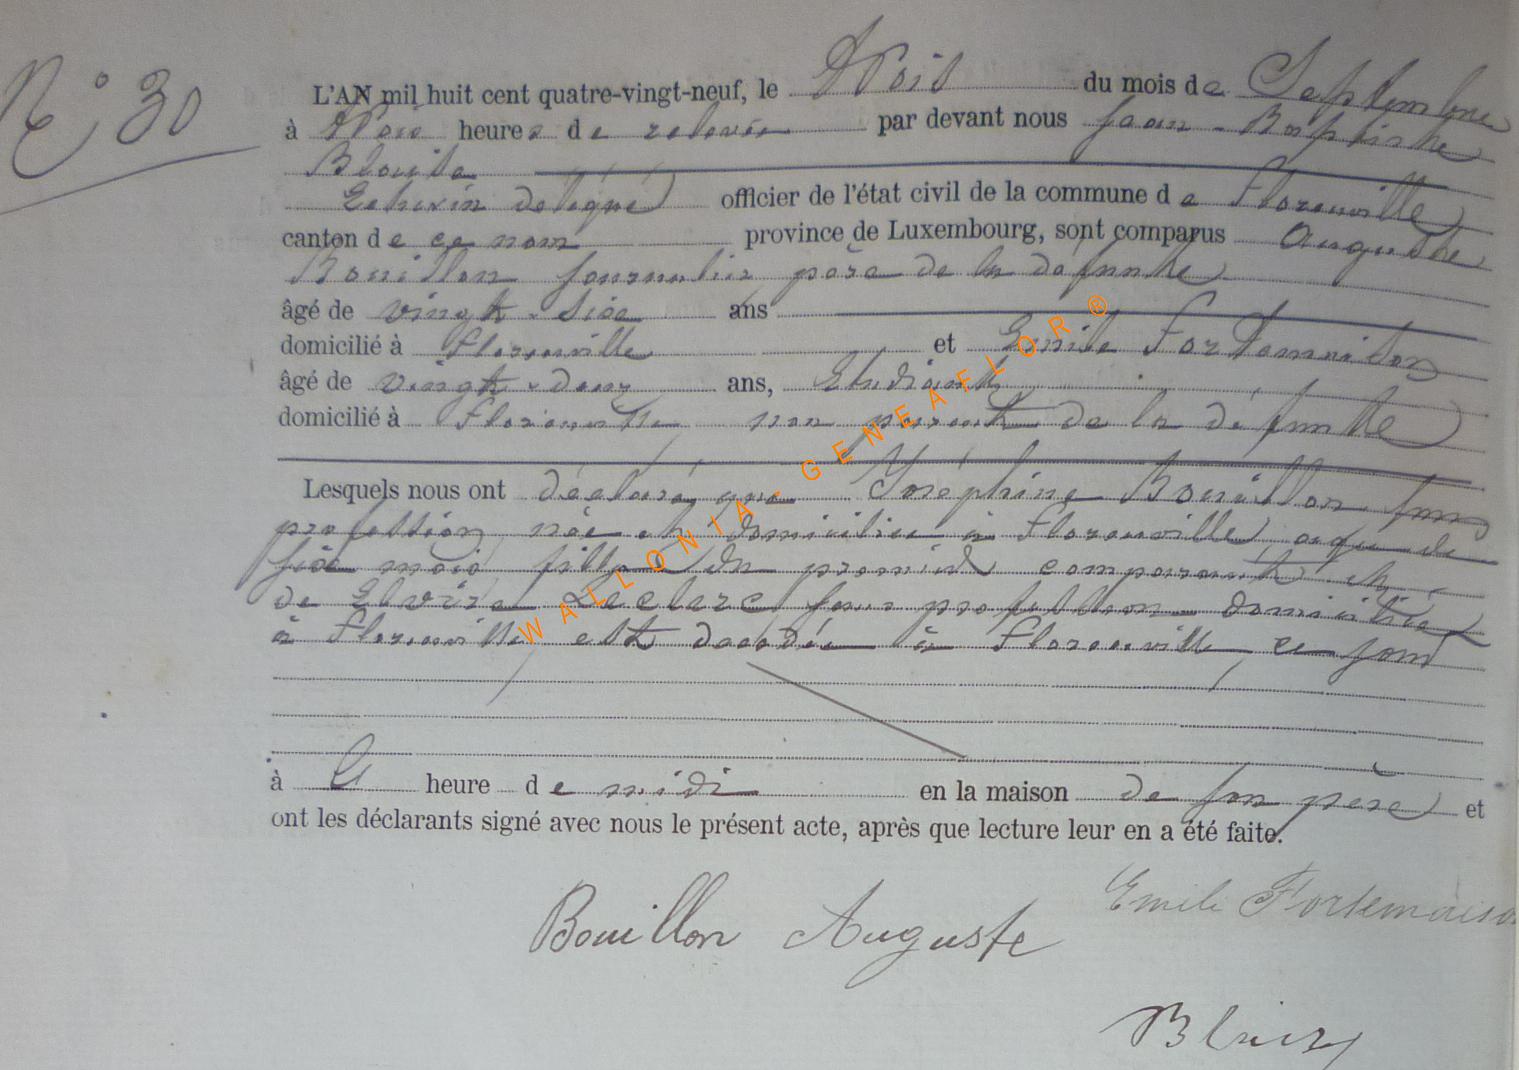 N° 30
L'AN mil huit cent quatre-vingt-neuf, le trois du mois de Septembre
à trois heures de relevée par devant nous Jean-Baptiste
Blaise
Echevin délégué officier de l'état civil de la commune de Florenville
canton de ce nom province de Luxembourg, sont comparus Auguste
Bouillon journalier père de la défunte
âgé de vingt-six ans
domicilié à Florenville et Emile Fortemaison
âgé de vingt-deux ans, Etudiant
domicilié à Florenville non parent de la défunte
Lesquels nous ont déclaré que Joséphine Bouillon sans
profession née et domiciliée à Florenville agée de
six mois fille du premier comparant et
de Elvire Leclerc sans profession domiciliée
à Florenville est décédée à Florenville ce jour
à heure de midi en la maison de son père et
ont les déclarants signé avec nous le présent acte, après que lecture leur en a été faite.
Emile Fortemaison
Bouillon Auguste
WALLONIA-GENEAFLOR®